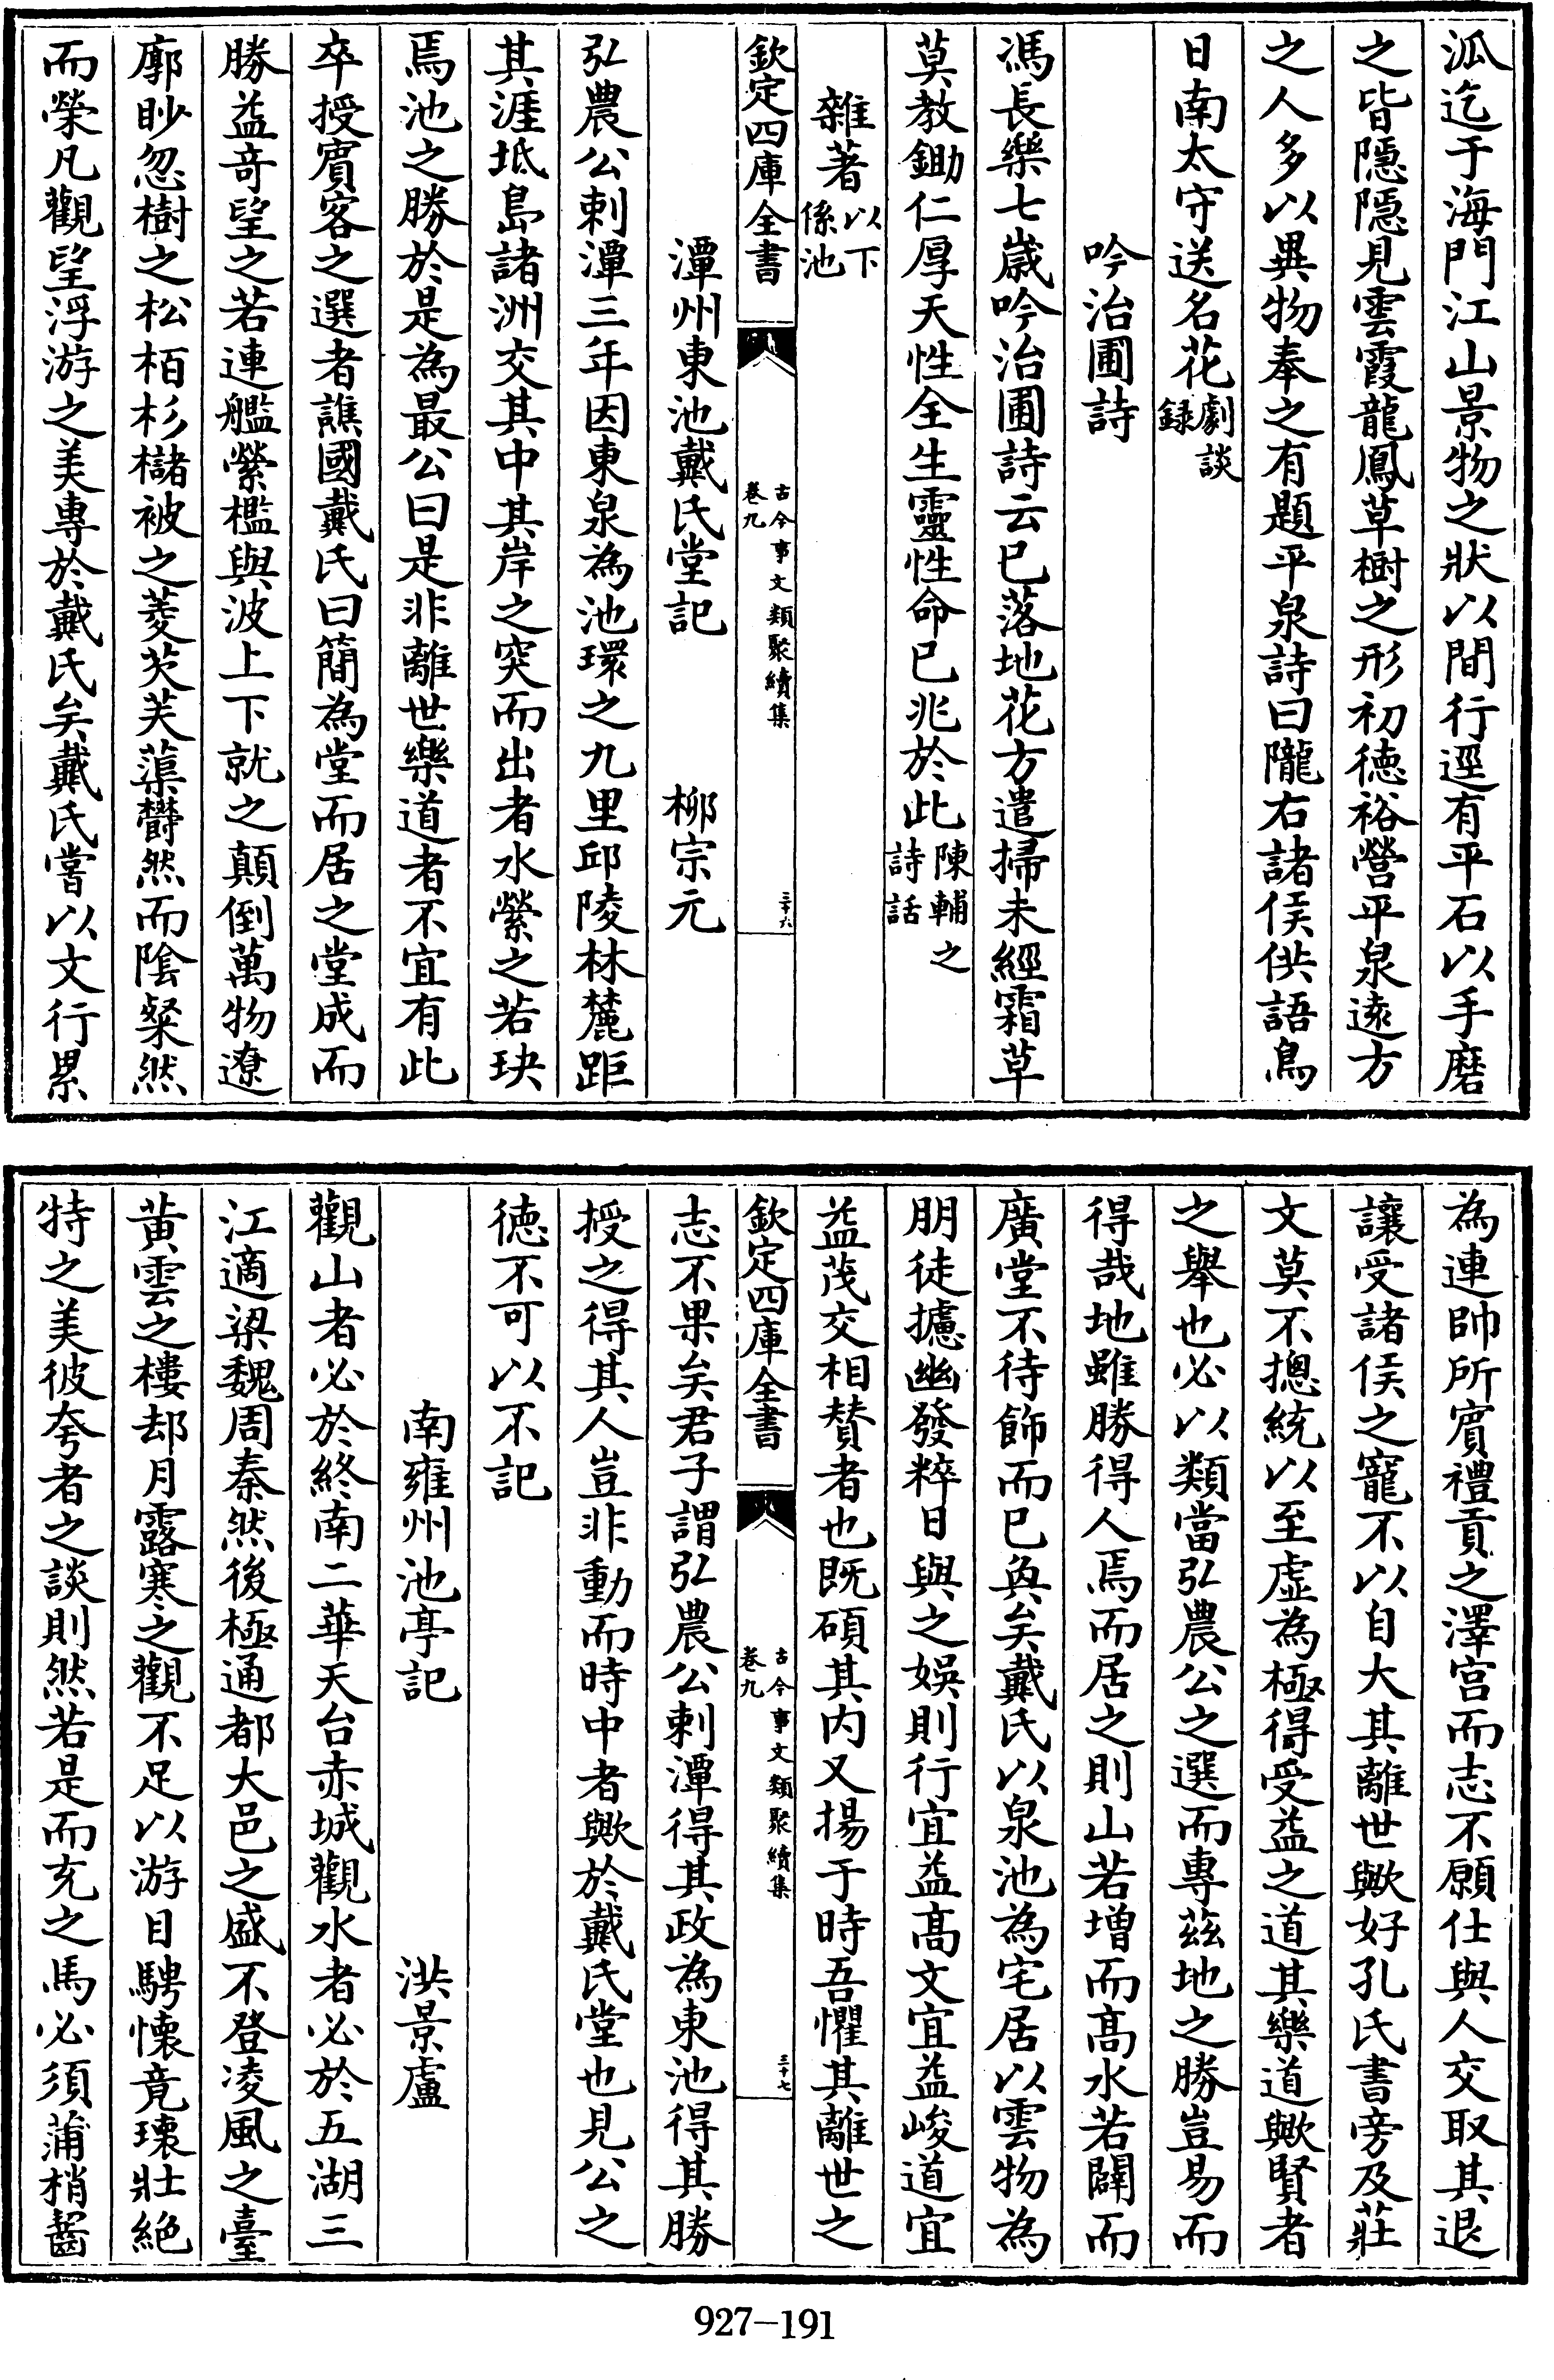 泒迄于海門江山景物之狀以間行遥有平石以手磨
之皆隱隱見雲霞龍鳳草樹之形初徳裕營平泉逺方
之人多以異物奉之有題平泉詩曰隴右諸侯供語鳥
日南太守送名花劇談録
吟治圃詩
馮長樂七嵗吟治圃詩云已落地花方遣掃未經霜草
莫教鋤仁厚天性全生靈性命已兆於此陳輔之詩話
雜著以下係池
欽定四庫全書
古今事文類聚續集
卷九
三十六
潭州東池戴氏堂記 柳宗元
弘農公刺潭三年因東泉為池環之九里邱陵林麓距
其涯坻島諸洲交其中其岸之突而出者水縈之若玦
焉池之勝於是為最公曰是非離世樂道者不宜有此
卒授賓客之選者譙國戴氏曰簡為堂而居之堂成而
勝益奇望之若連艦縈檻與波上下就之顛倒萬物遼
廓眇忽樹之松栢杉櫧被之菱芡芙蕖欝然而隂粲然
而榮凡觀望浮游之美專於戴氏矣戴氏嘗以文行累
為連帥所賓禮貢之澤宫而志不願仕與人交取其退
讓受諸侯之寵不以自大其離世歟好孔氏書旁及莊
文莫不摠統以至虚為極得受益之道其樂道歟賢者
之舉也必以類當弘農公之選而專兹地之勝豈易而
得哉地雖勝得人焉而居之則山若増而髙水若闢而
廣堂不待飾而已奐矣戴氏以泉池為宅居以雲物為
朋徒攄幽發粹日與之娛則行宜益髙文宜益峻道宜
益茂交相賛者也既碩其内又揚于時吾懼其離世之
欽定四庫全書
古今事文類聚續集
卷九
三十七
志不果矣君子謂弘農公刺潭得其政為東池得其勝
授之得其人豈非動而時中者歟於戴氏堂也見公之
徳不可以不記
南雍州池亭記 洪景盧
觀山者必於終南二華天台赤城觀水者必於五湖三
江適梁魏周秦然後極通都大邑之盛不登凌風之臺
黄雲之樓却月露寒之觀不足以游目騁懷竟瓌壯絶
特之美彼夸者之談則然若是而充之馬必須蒲梢齧
927—191